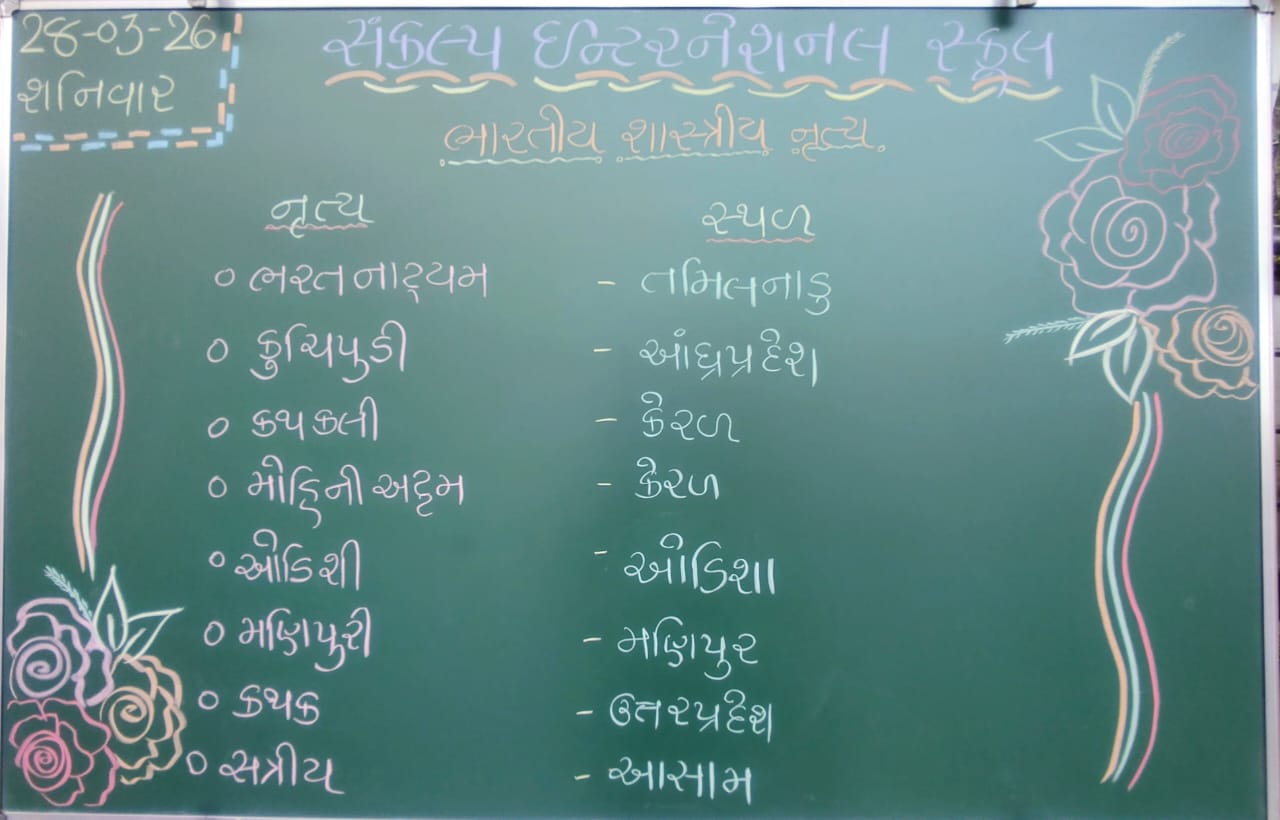 28-03-26
શનિવાર
સંકલ્પ ઇન્ટરનેશનલ સ્કૂલ
ભારતીય શાસ્ત્રીય નૃત્ય.
નૃત્ય સ્થળ
○ ભરતનાટ્યમ - તમિલનાડુ
○ કુચિપુડી - આંધ્રપ્રદેશ
○ કથકલી - કેરળ
○ મોહિનીઅટ્ટમ - કેરળ
○ ઓડિશી - ઓડિશા
○ મણિપુરી - મણિપુર
○ કથક - ઉતરપ્રદેશ
○ સત્રીય - આસામ